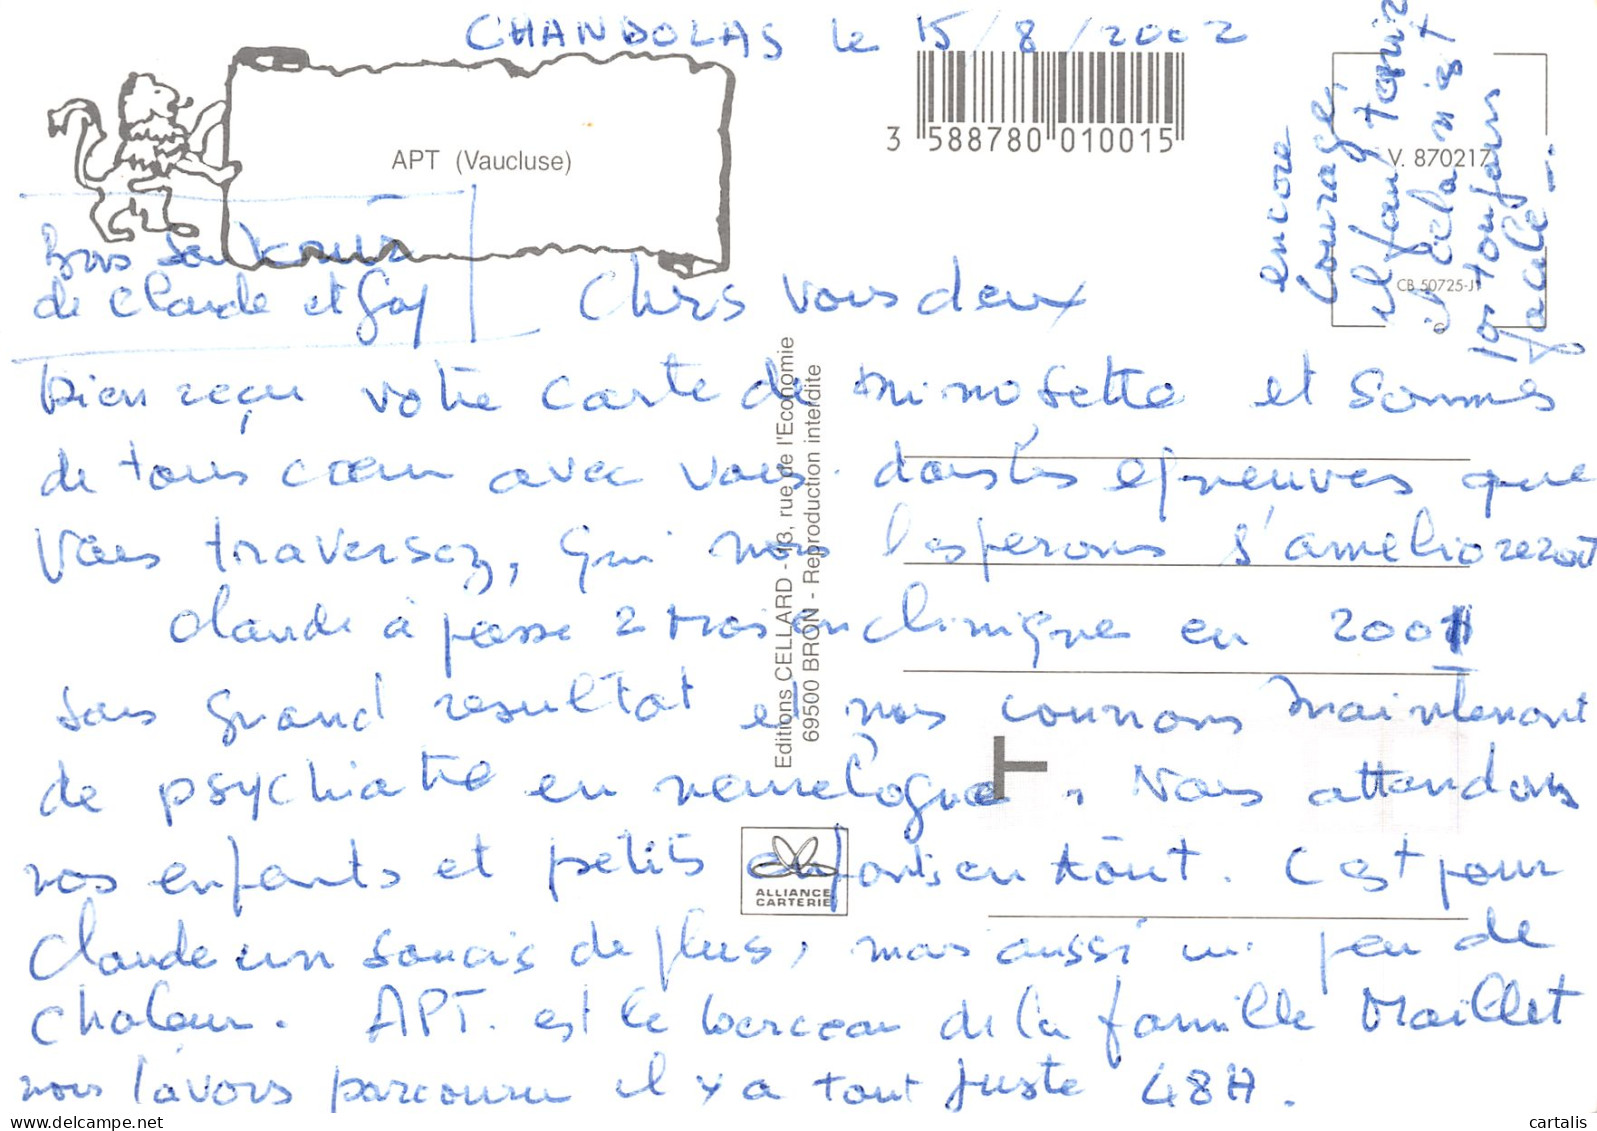 CHANDOLAS le 15/8/2002
APT (Vaucluse)
3 588780 010015
V. 870217
CB 50725-J1
encore
courage,
il faut tenir
s'éclairs
toujours
facile -.
Bons
de Claude et Guy
Chers vous deux
bien reçu votre carte de mimosette et sommes
de tous cœur avec vous dans les épreuves que
vous traversez, qui nous l'esperons s'amelioreront
Claude à passé 2 mois en clinique en 2001
sans grand resultat et nous courrons maintenant
de psychiatre en neurologue. Nous attendons
nos enfants et petits enfants en Aôut. C'est pour
Claude un soucis de plus, mais aussi un peu de
chaleur. APT. est le berceau de la famille Maillet
nous l'avons parcouru il y a tout juste 48H.
Editions CELLARD - 13, rue de l'Economie
69500 BRON - Reproduction interdite
ALLIANCE
CARTERIE
cartalis